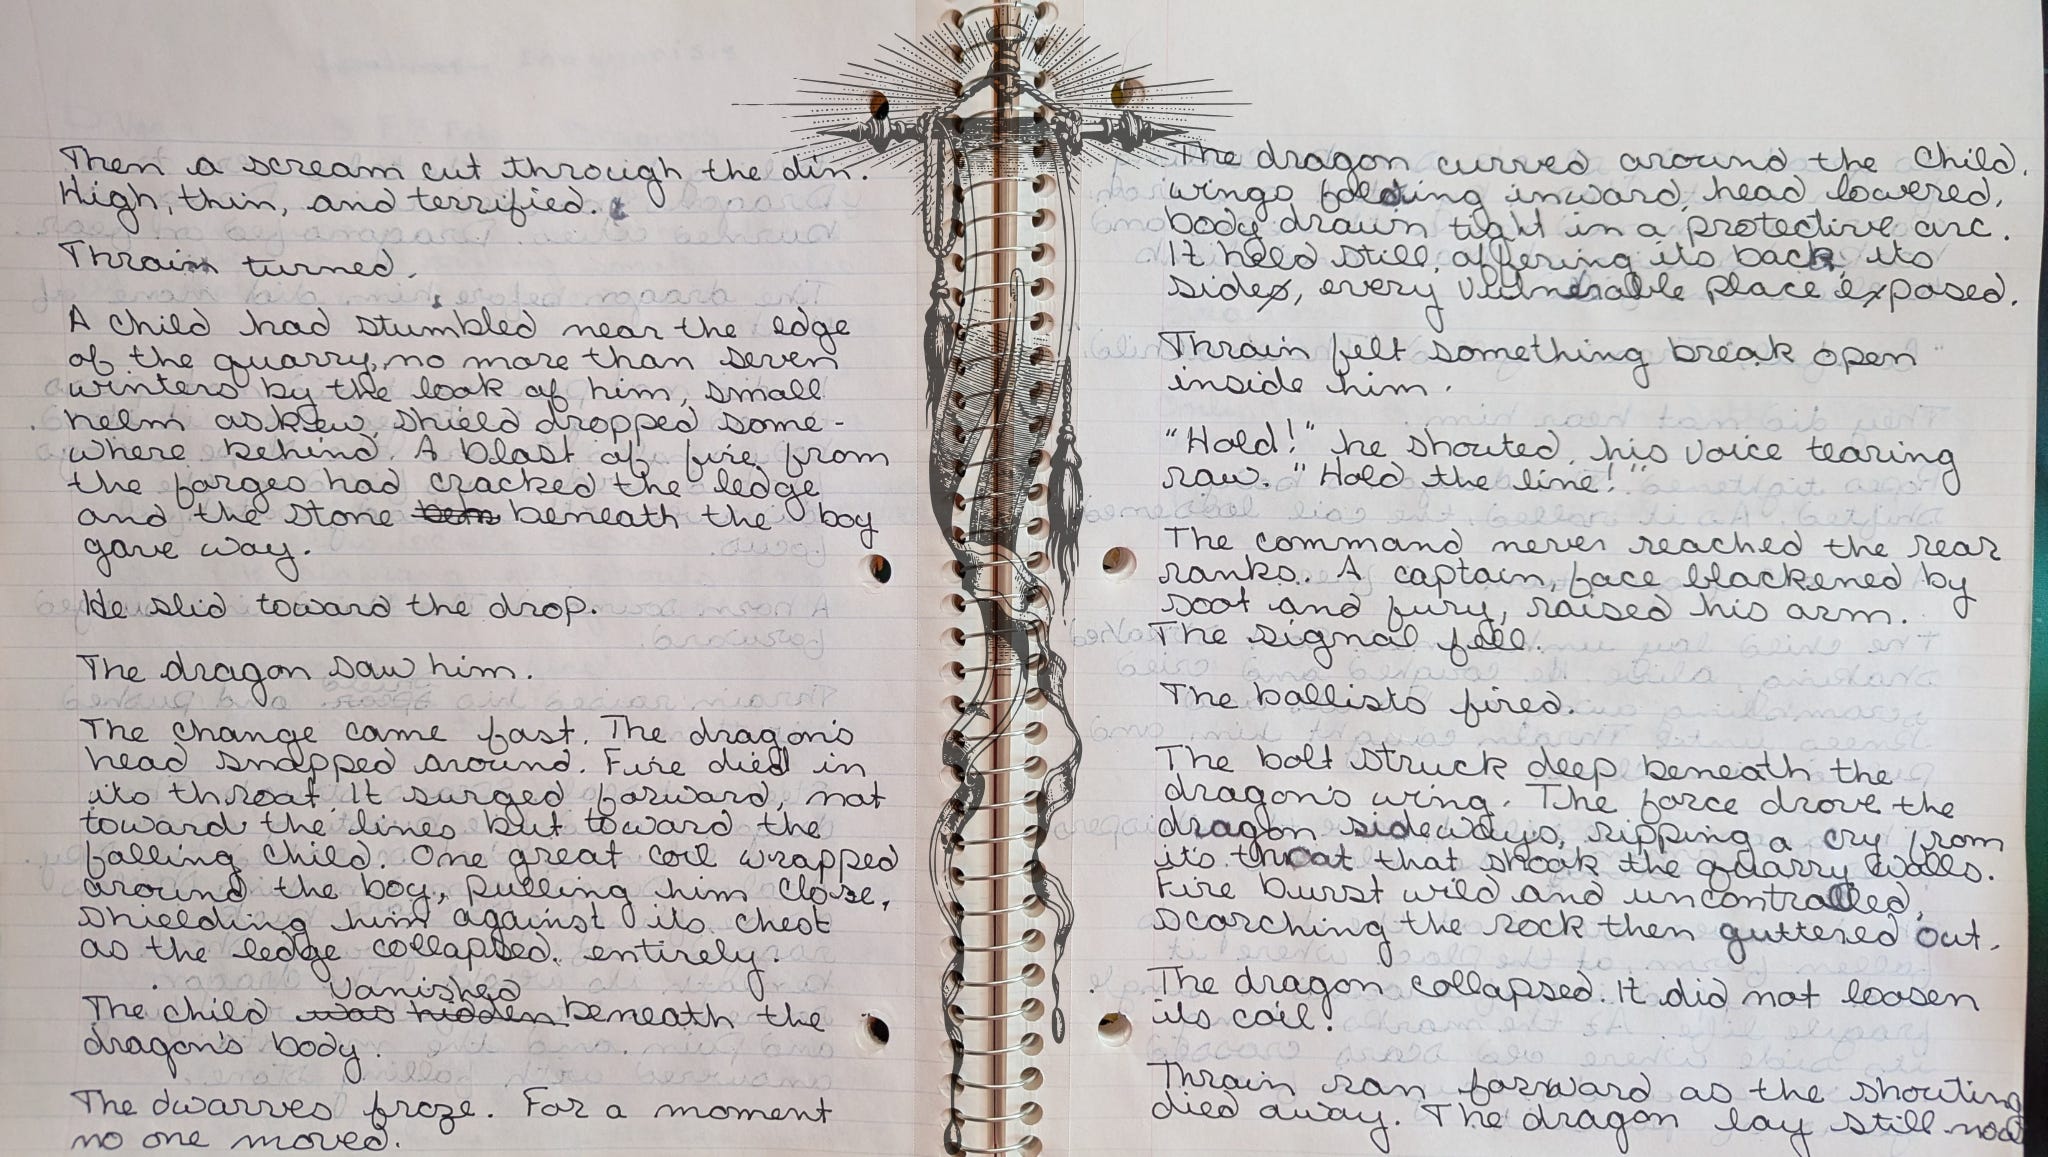 Then a scream cut through the din.
High, thin, and terrified.
Thrain turned.
A child had stumbled near the edge
of the quarry, no more than seven
winters by the look of him, small
helm askew, shield dropped some-
where behind. A blast of fire from
the forges had cracked the ledge
and the stone beneath the boy
gave way.
He slid toward the drop.
The dragon saw him.
The change came fast. The dragon's
head snapped around. Fire died in
its throat. It surged forward, not
toward the lines but toward the
falling child. One great coil wrapped
around the boy, pulling him close,
shielding him against its chest
as the ledge collapsed. entirely.
vanished
The child was hidden beneath the
dragon's body.
The dwarves froze. For a moment
no one moved.
The dragon curved around the child.
wings folding inward, head lowered,
body drawn tight in a protective arc.
It held still, offering its back, its
sides, every vulnerable place exposed.
Thrain felt something break open
inside him.
"Hold!" he shouted, his voice tearing
raw. "Hold the line!"
The command never reached the rear
ranks. A captain, face blackened by
soot and fury, raised his arm.
The signal fell.
The ballista fired.
The bolt struck deep beneath the
dragon's wing. The force drove the
dragon sideways, ripping a cry from
its throat that shook the quarry walls.
Fire burst wild and uncontrolled,
scorching the rock then guttered out.
The dragon collapsed. It did not loosen
its coil.
Thrain ran forward as the shouting
died away. The dragon lay still now